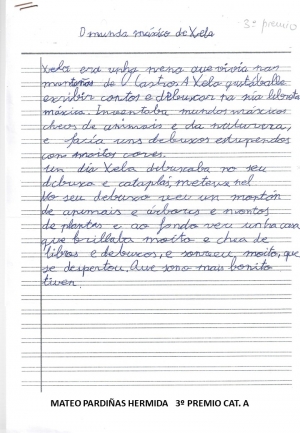 3º premio
O mundo máxico de Xela
Xela era unha nena que vivía nas
montañas de Castro. A Xela gustáballe
escribir contos e debuxar na súa libreta
máxica. Inventaba mundos máxicos
cheos de animais e da natureza,
e facía uns debuxos estupendos
con moitos cores.
Un día Xela debuxaba no seu
debuxo e cataplás meteuse nel
No seu debuxo veu un montón
de animais e árbores e montos
de plantas e ao fondo veu unha casa
que brillaba moito e chea de
libros e debuxos, e sonreu moito, que
se despertou. Que sono mais bonito
tiven.
MATEO PARDIÑAS HERMIDA 3º PREMIO CAT. A